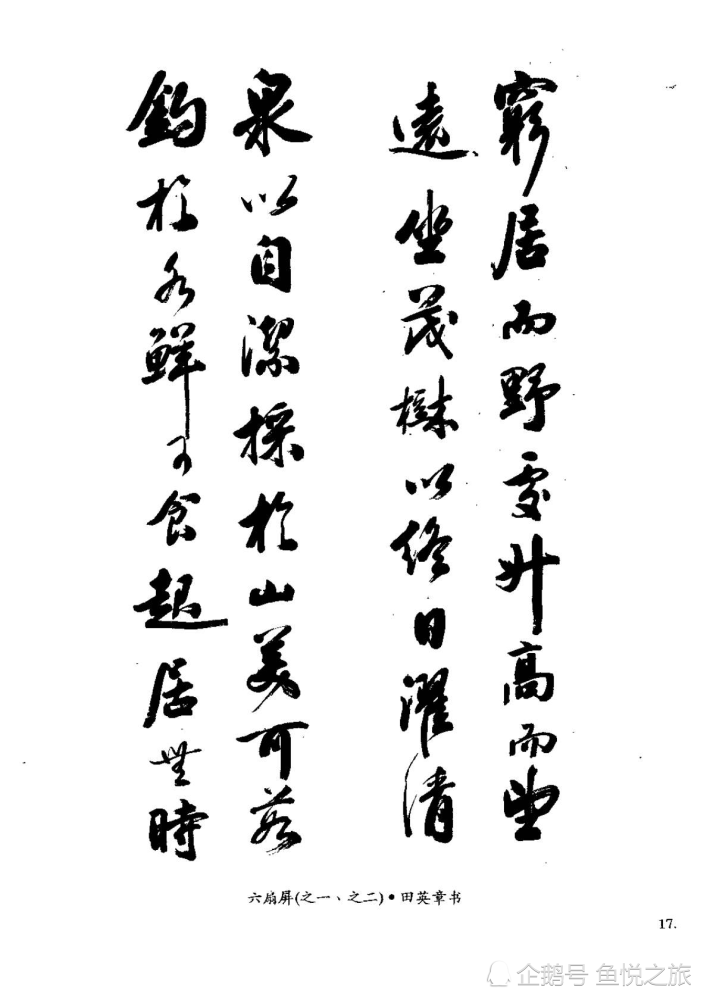 窮居而野處升高而望
遠坐茂樹以終日濯清
泉以自潔採於山美可茹
釣於水鮮可食起居無時
六扇屏(之一、之二)•田英章书
17.
企鹅号 鱼悦之旅